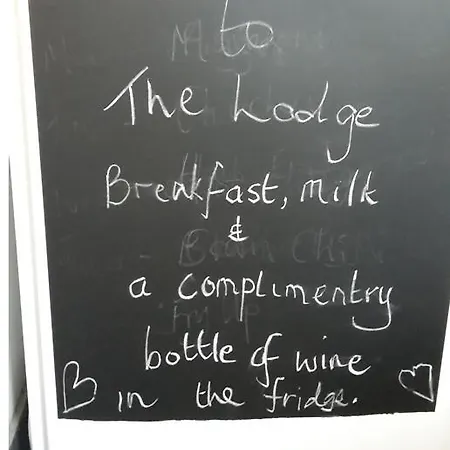 to
The Lodge
Breakfast, milk
&
a complimentry
bottle of wine
in the fridge.